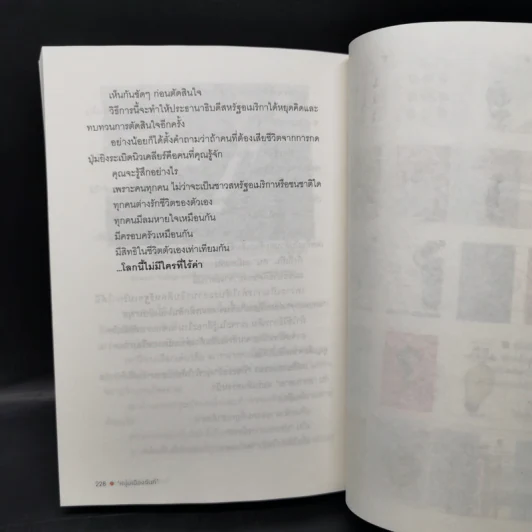 เห็นกันชัดๆ ก่อนตัดสินใจ
วิธีการนี้จะทำให้ประธานาธิบดีสหรัฐอเมริกาได้หยุดคิดและ
ทบทวนการตัดสินใจอีกครั้ง
อย่างน้อยก็ได้ตั้งคำถามว่าถ้าคนที่ต้องเสียชีวิตจากการกด
ปุ่มยิงระเบิดนิวเคลียร์คือคนที่คุณรู้จัก
คุณจะรู้สึกอย่างไร
เพราะคนทุกคน ไม่ว่าจะเป็นชาวสหรัฐอเมริกาหรือชนชาติใด
ทุกคนต่างรักชีวิตของตัวเอง
ทุกคนมีลมหายใจเหมือนกัน
มีครอบครัวเหมือนกัน
มีสิทธิในชีวิตตัวเองเท่าเทียมกัน
...โลกนี้ไม่มีใครที่ไร้ค่า
226 • "หนุ่มเมืองจันท์"